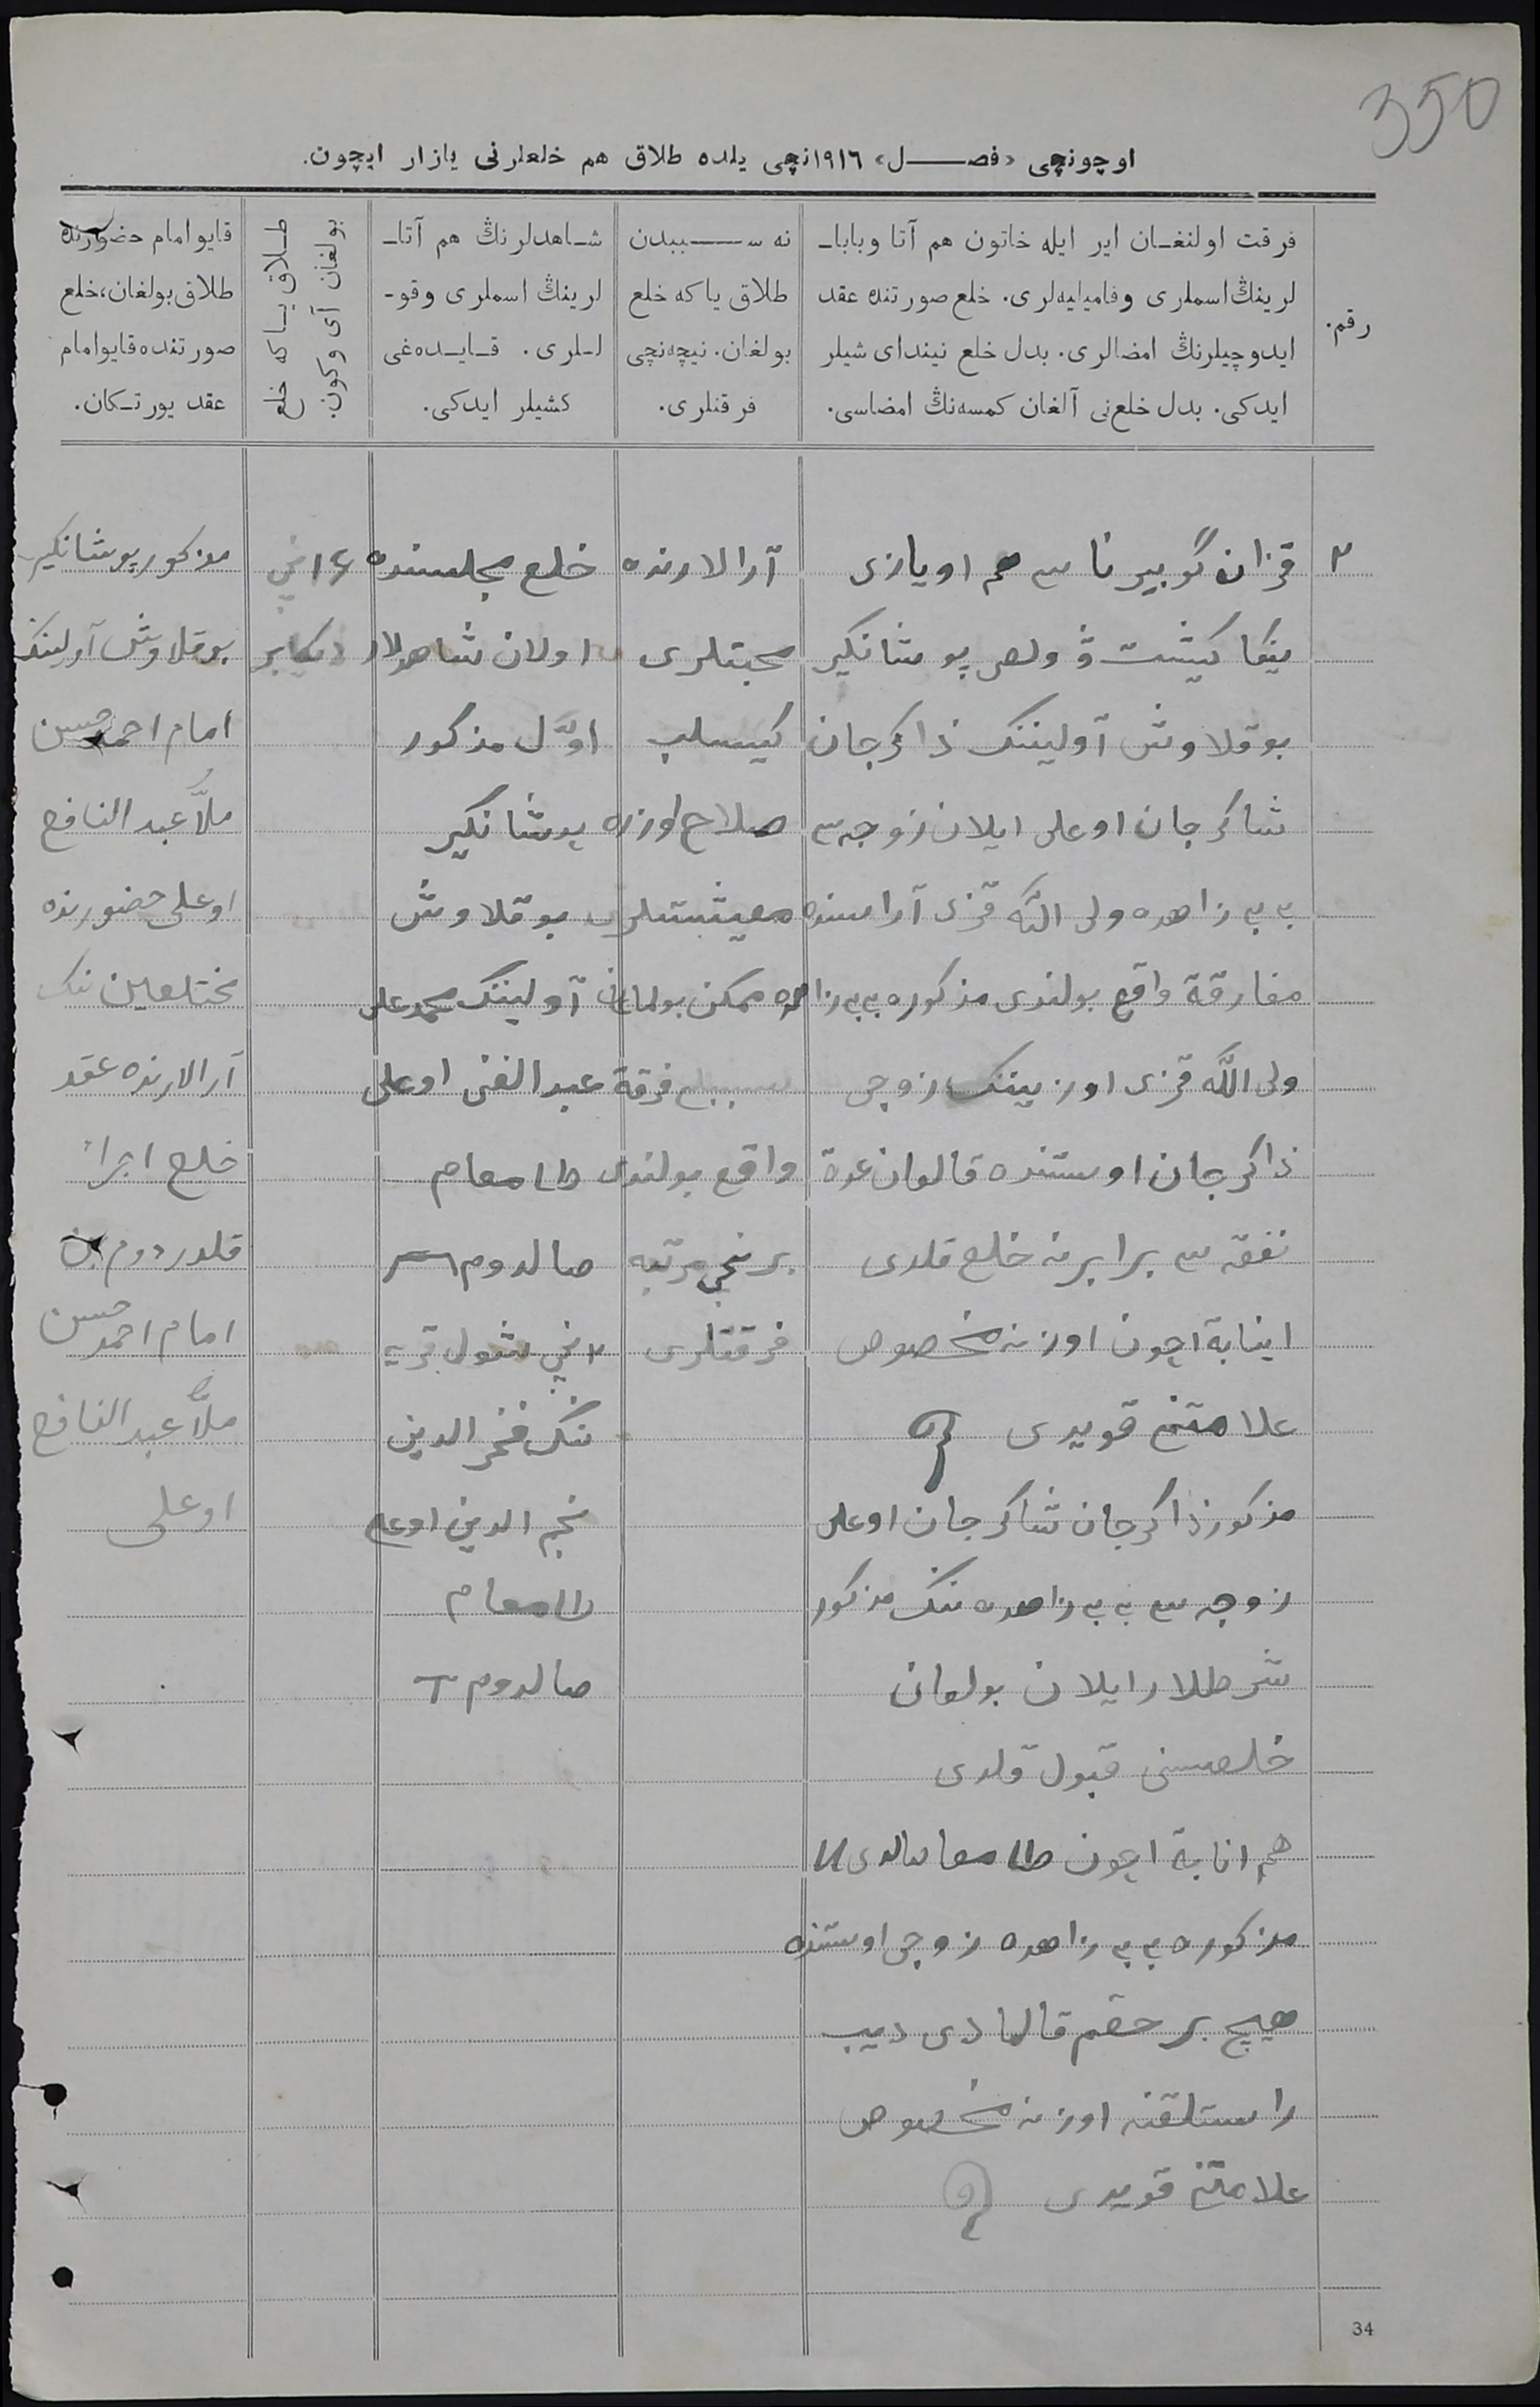 350
اوچونچی «فصل» ١٩١٦نچی یلده طلاق هم خلعلرنی یازار ایچون.
رقم.
فرقت اولنغان ایر ایله خاتون هم آتا وبابا-
لرینڭ اسملری وفامیلیه‌لری. خلع صورتنده عقد
ایدوچیلرنڭ امضالری. بدل خلع نیندای شیلر
ایدکی. بدل خلع‌نی آلغان کمسه‌نڭ امضاسی.
نه سببدن
طلاق یا که خلع
بولغان. نیچه‌نچی
فرقتلری.
شاهدلرنڭ هم آتا-
لرینڭ اسملری وقو-
للری. قایده‌غی
کشیلر ایدکی.
طلاق یا که خلع
بولغان آی وکون.
قایو امام حضورنده
طلاق بولغان، خلع
صورتنده قایو امام
عقد یورتکان.
٢
قزان گوبیرناسی هم اویازی
بوقلاوش آولیننک ذاکرجان
شاکرجان اوغلی ایلان زوجه‌سی
بی بی زاهده ولی الله قزی آراسنده
مفارقة واقع بولندی مذکوره بی بی زاهده
ولی الله قزی اوزیننک زوجی
ذاکرجان اوستنده قالغان عدة
نفقه‌سی برابرنه خلع قلدی
اینابة اچون اوزنه مخصوص
علامتنی قویدی
مذکور ذاکرجان شاکرجان اوغلی
زوجه‌سی بی بی زاهده ننک مذکور
شرطلار ایلان بولغان
خلعسنی قبول قلدی
هم انابة اچون طامغا صالدی
مذکوره بی بی زاهده زوجی اوستنده
هیچ بر حقم قالمادی دیب
راستلقنه اوزنه مخصوص
علامتنی قویدی
آرالارنده
محبتلری
کیسلب
صلاح اوزره
معیشتلری
ممکن بولماغان
سببلی فرقة
واقع بولندی
برنچی مرتبه
فرقتلری
خلع مجلسنده
اولان شاهدلار
اوّل مذکور
پوشانکیر
بوقلاوش
آولیننک محمدعلی
عبد الغنی اوغلی
طامغام
صالدوم
٢ نچی شول قریه
ننک فخر الدین
نجم الدین اوغلی
طامغام
صالدوم
١٤ نچی
دیکابر
مذکور پوشانکیر
بوقلاوش آولیننک
امام احمدحسن
ملّا عبد النافع
اوغلی حضورنده
مختلعین ننک
آرالارنده عقد
خلع اجراء
قلدردم بن
امام احمدحسن
ملّا عبد النافع
اوغلی
34